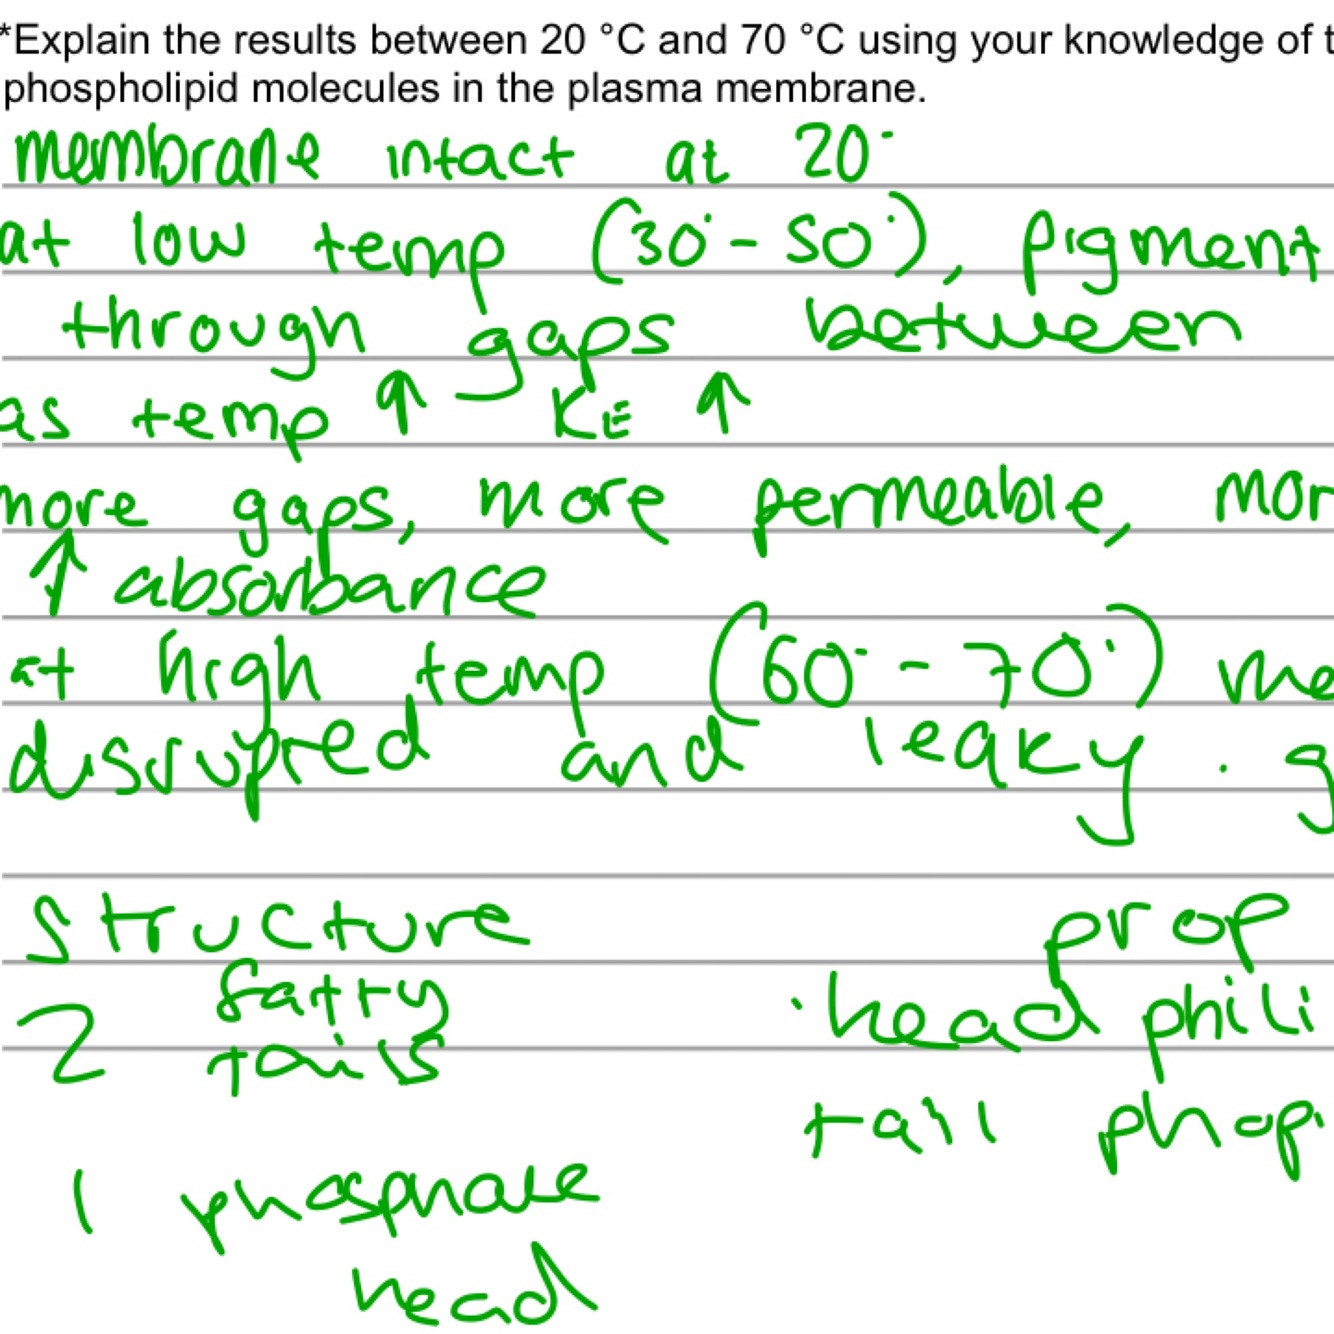 *Explain the results between 20 °C and 70 °C using your knowledge of t
phospholipid molecules in the plasma membrane.
membrane intact at 20°
at low temp (30° - 50°), pigment
through gaps between
as temp ↑ KE ↑
more gaps, more permeable, mor
↑ absorbance
at high temp (60° - 70°) me
disrupted and leaky . g
structure prop
2 fatty tails · head phili
tail phop
1 phosphate
head